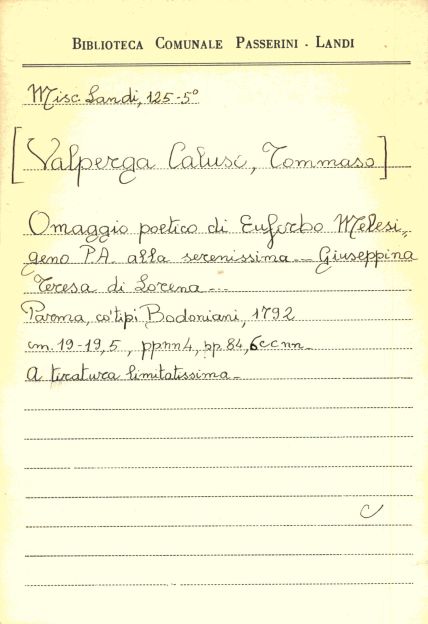 BIBLIOTECA COMUNALE PASSERINI - LANDI
Misc. Landi, 125-5°
[Valperga Caluso, Tommaso]
Omaggio poetico di Euforbo Melesi=
geno P.A. alla serenissima ... Giuseppina
Teresa di Lorena ...
Parma, co' tipi Bodoniani, 1792
cm. 19-19,5, ppnn4, pp. 84, 6ccnn.
A tiratura limitatissima.
C